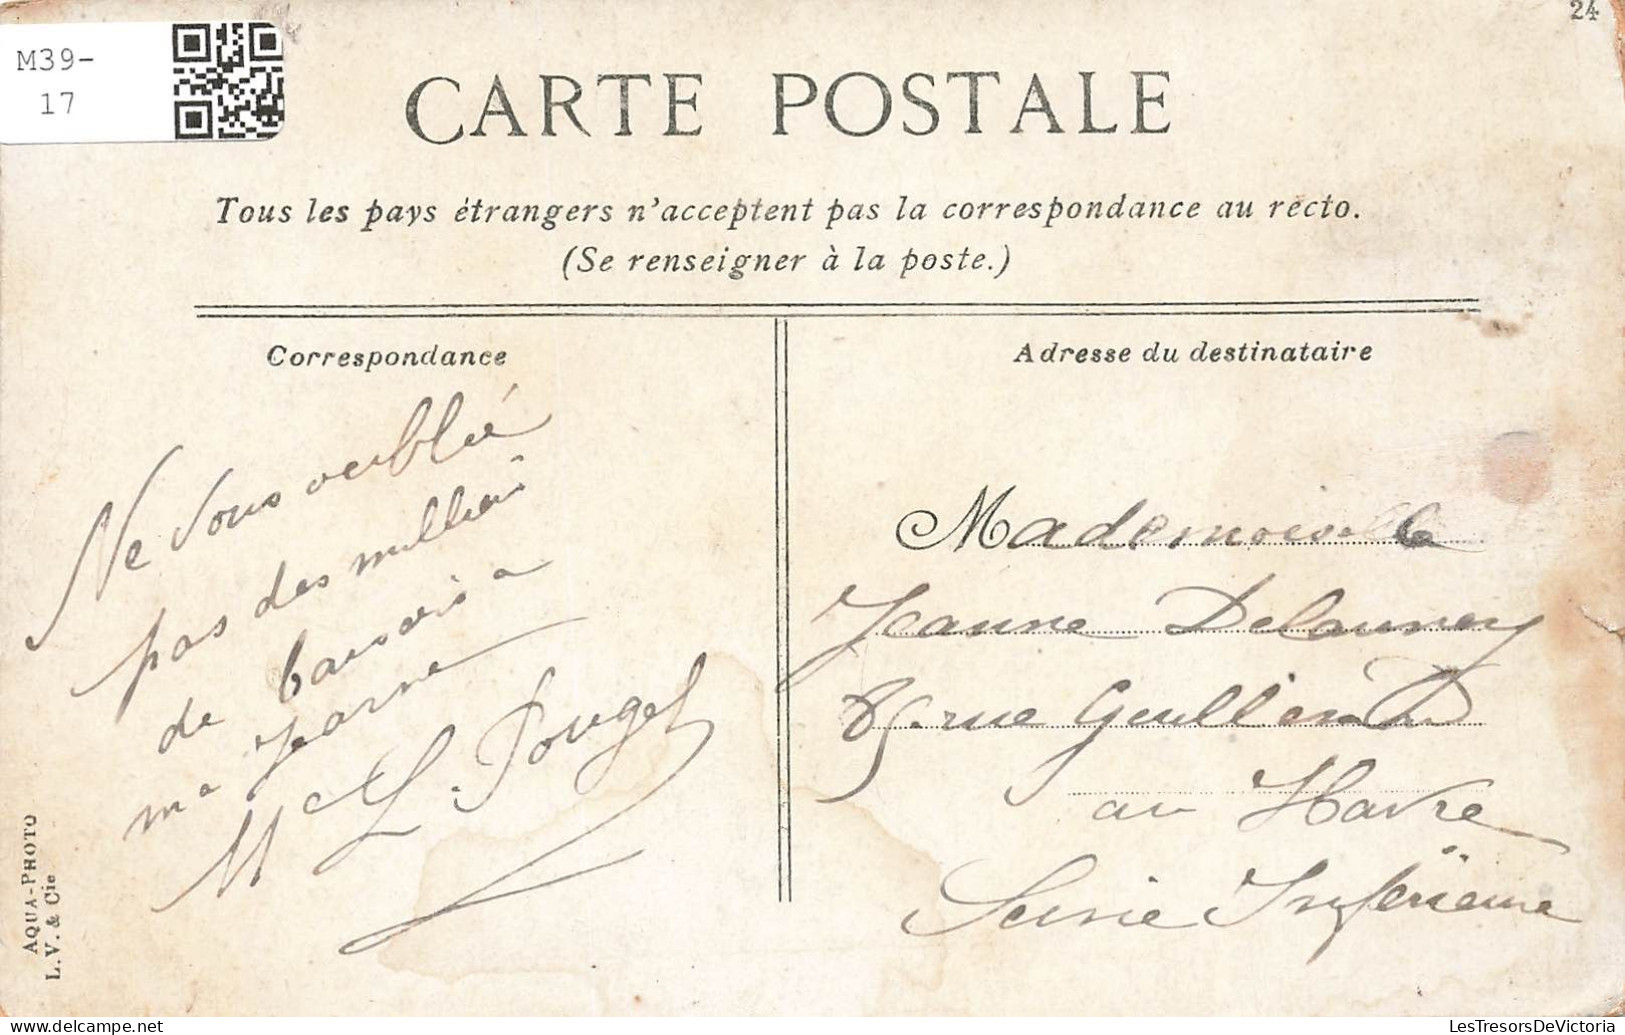 M39-
17
24
CARTE POSTALE
Tous les pays étrangers n'acceptent pas la correspondance au recto.
(Se renseigner à la poste.)
Correspondance
Ne vous oublié
pas des milliers
de baisers a
ma Jeanne
L. Pouget
Adresse du destinataire
Mademoiselle
Jeanne Delaunay
rue
au Havre
Seine Inférieure
AQUA-PHOTO
L.V. & Cie
delcampe.net
LesTresorsDeVictoria